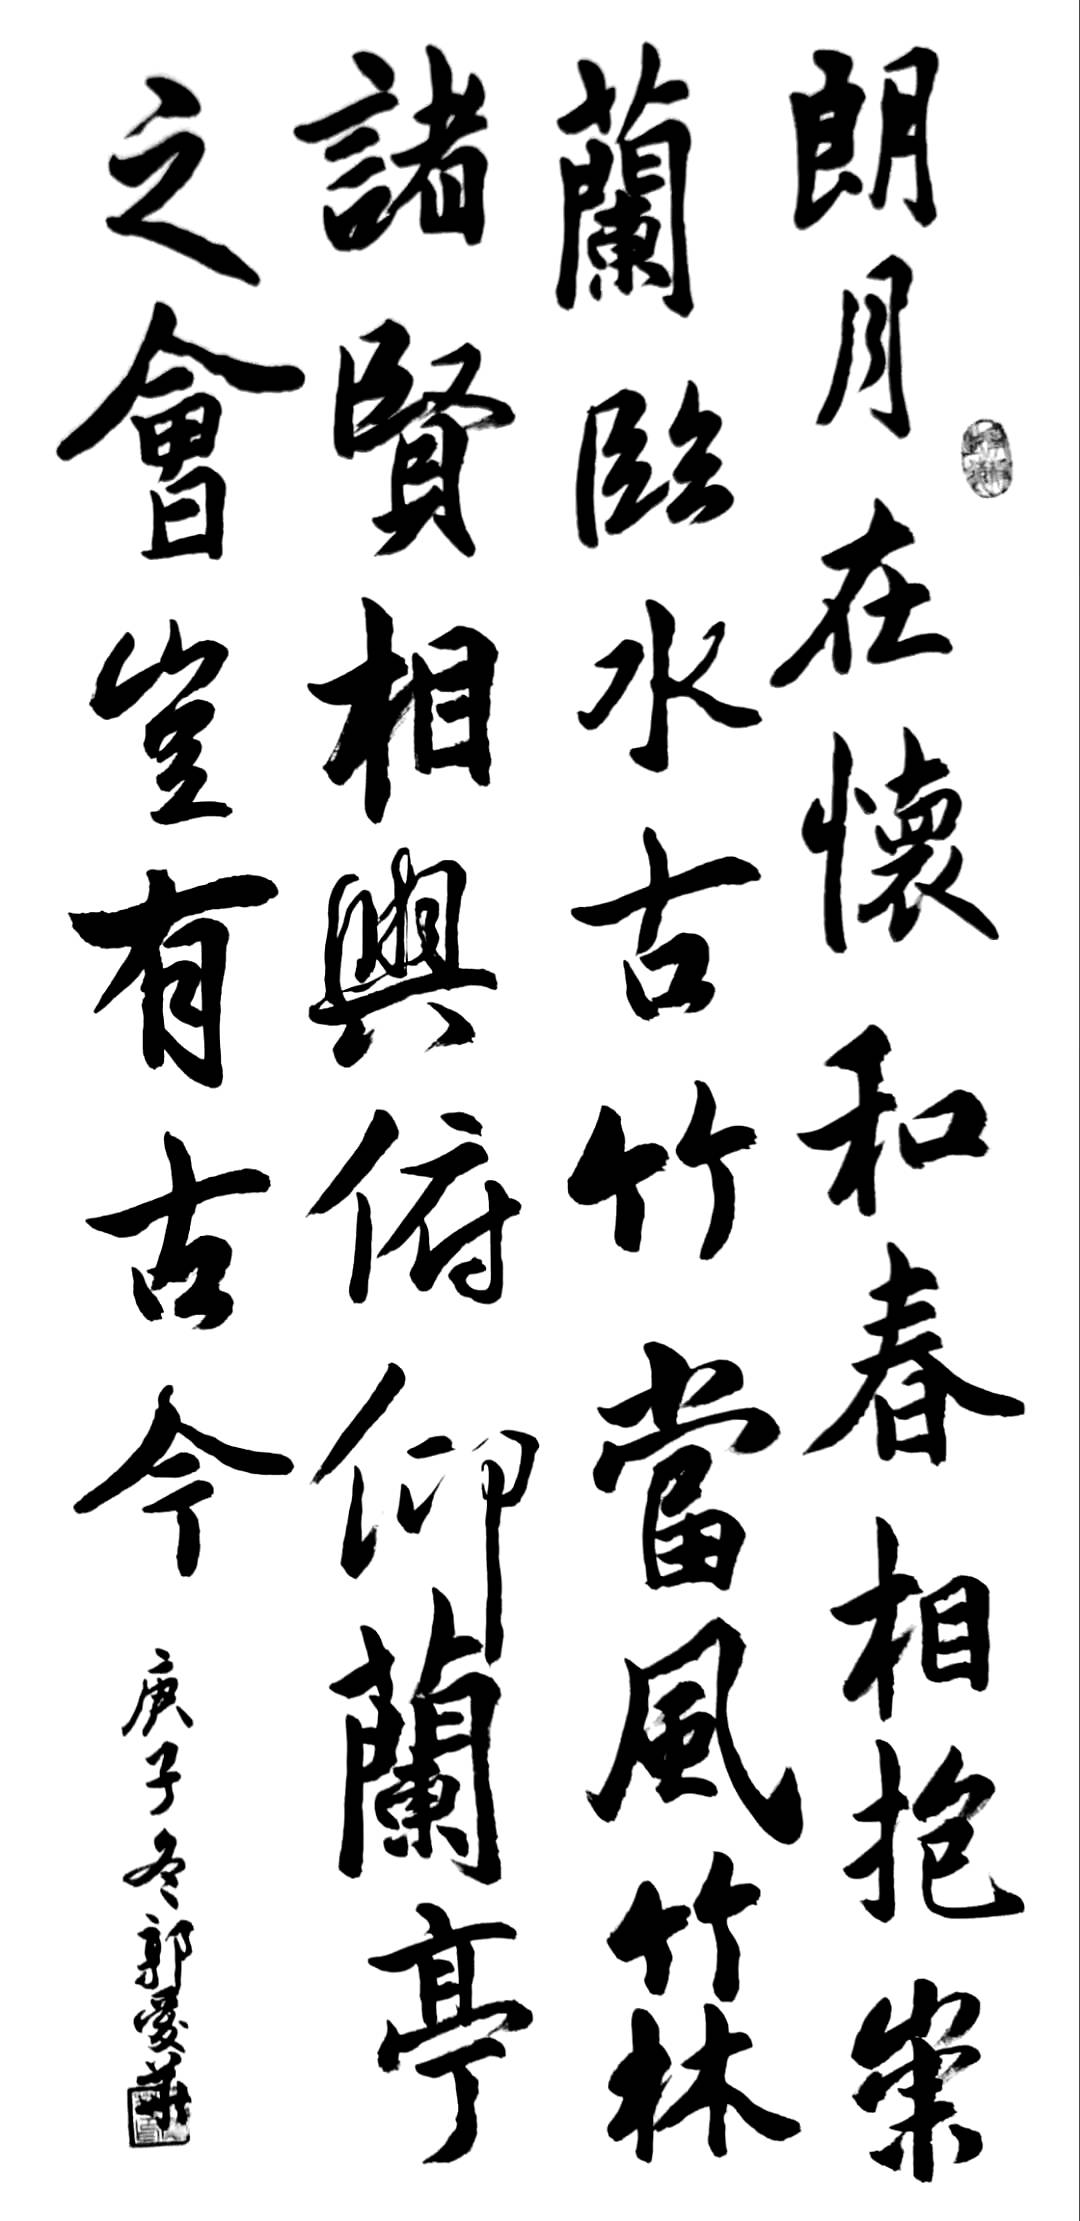 朗月在懷和春相抱崇
蘭臨水古竹當風竹林
諸賢相與俯仰蘭亭
之會豈有古今
庚子冬郭愛華